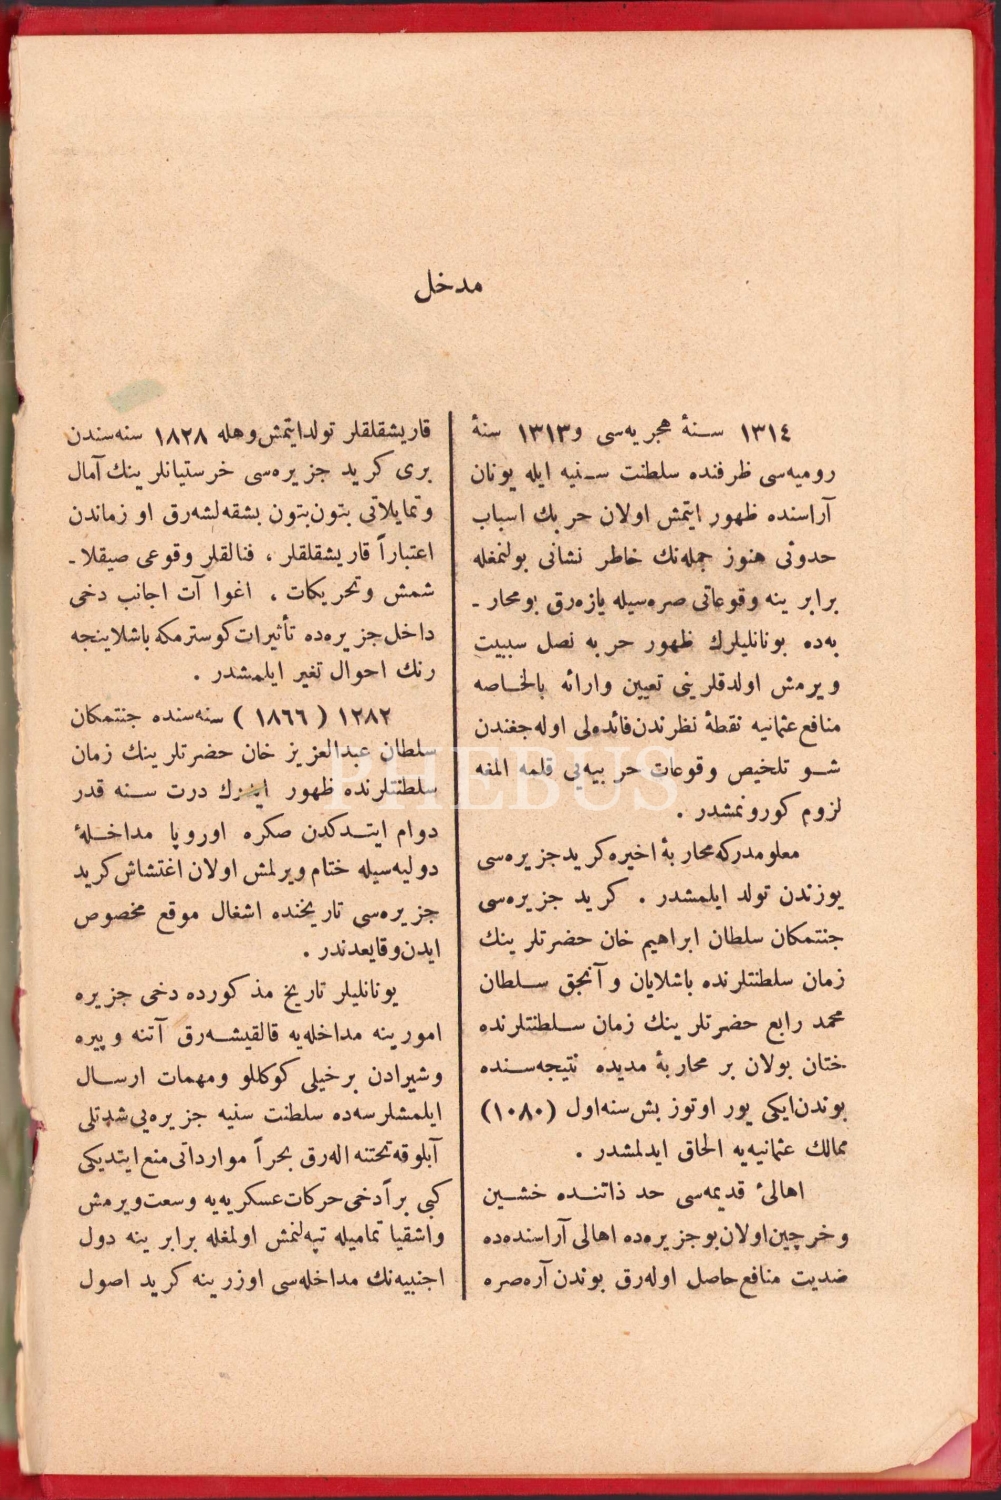 مدخل
١٣١٤ سنهٔ هجریه‌سی و١٣١٣ سنهٔ
رومیه‌سی ظرفنده سلطنت سنیه ایله یونان
آراسنده ظهور ایتمش اولان حربك اسباب
حدوثی هنوز جمله‌نك خاطر نشانی بولنمغله
برابر ینه وقوعاتی صره‌سیله یازه‌رق بومحار ـ
به‌ده یونانلیلرك ظهور حربه نصل سببیت
ویرمش اولدقلرینی تعیین وارائه بالخاصه
منافع عثمانیه نقطهٔ نظرندن فائده‌لی اوله‌جغندن
شو تلخیص وقوعات حربیه‌یی قلمه المغه
لزوم کورونمشدر .
معلومدرکه محاربهٔ اخیره کرید جزیره‌سی
یوزندن تولد ایلمشدر . کرید جزیره‌سی
جنتمکان سلطان ابراهیم خان حضرتلرینك
زمان سلطنتلرنده باشلایان و آنجق سلطان
محمد رابع حضرتلرینك زمان سلطنتلرنده
ختان بولان بر محاربهٔ مدیده نتیجه‌سنده
بوندن‌ایکی یوز اوتوز بش سنه‌اول (١٠٨٠)
ممالك عثمانیه‌یه الحاق ایدلمشدر .
اهالیٔ قدیمه‌سی حد ذاتنده خشین
وخرچین‌اولان‌بوجزیره‌ده اهالی آراسنده‌ده
ضدیت منافع حاصل اوله‌رق بوندن آره‌صره
قاریشقلقلر تولدایتمش‌وهله ١٨٢٨ سنه‌سندن
بری کرید جزیره‌سی خرستیانلرینك آمال
وتمایلاتی بتون‌بتون بشقه‌لشه‌رق او زماندن
اعتباراً قاریشقلقلر ، فنالقلر وقوعی صیقلا ـ
شمش وتحریکات ، اغوا آت اجانب دخی
داخل جزیره‌ده تأثیرات کوسترمکه باشلاینجه
رنك احوال تغیر ایلمشدر .
١٢٨٢ ( ١٨٦٦ ) سنه‌سنده جنتمکان
سلطان عبدالعزیز خان حضرتلرینك زمان
سلطنتلرنده ظهور ایدرك درت سنه قدر
دوام ایتدکدن صکره اوروپا مداخلهٔ
دولیه‌سیله ختام ویرلمش اولان اغتشاش کرید
جزیره‌سی تاریخنده اشغال موقع مخصوص
ایدن وقایعدندر .
یونانلیلر تاریخ مذکورده دخی جزیره
امورینه مداخله‌یه قالقیشه‌رق آتنه وپیره
وشیرادن برخیلی کوکللو ومهمات ارسال
ایلمشلرسه‌ده سلطنت سنیه جزیره‌یی شدتلی
آبلوقه تحتنه اله‌رق بحراً مواردانی منع ایتدیکی
کبی براًدخی حرکات عسکریه‌یه وسعت ویرمش
واشقیا تمامیله تپه‌لنمش اولمغله برابر ینه دول
اجنبیه‌نك مداخله‌سی اوزرینه کرید اصول
PHEBUS